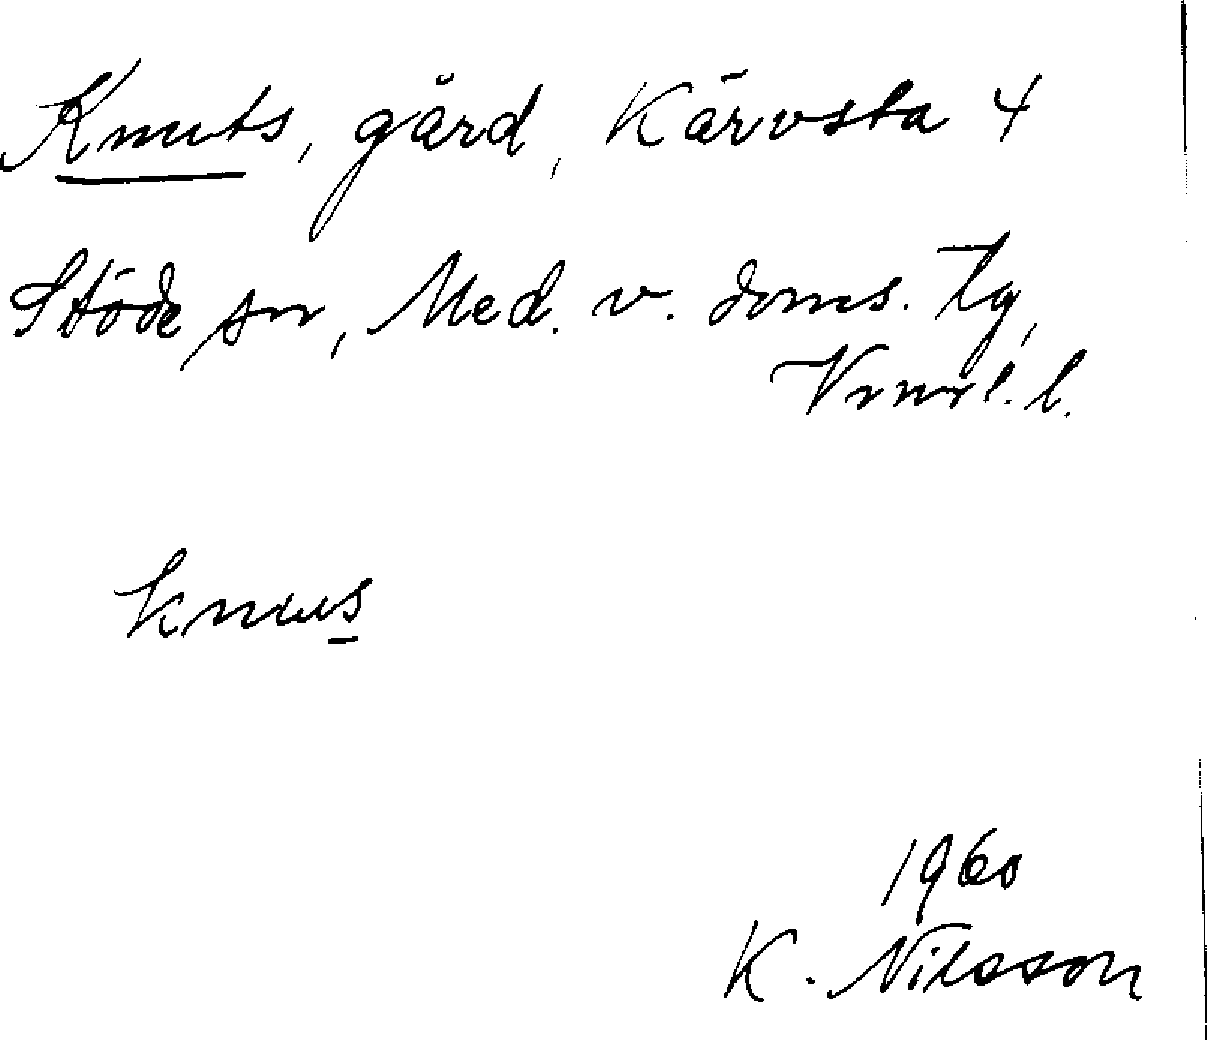 Knuts, gård, Kärvsta 4
Stöde sn, Med. v. doms. tg,
Vnrl. l.
knus
1960
K. Nilsson